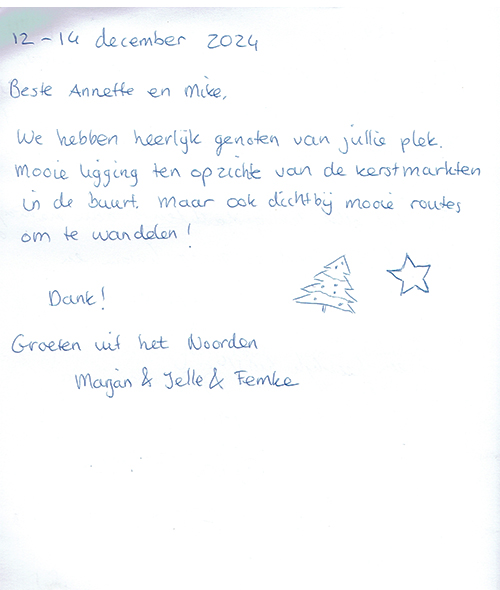 12 - 14 december 2024
Beste Annette en Mike,
We hebben heerlijk genoten van jullie plek.
Mooie ligging ten opzichte van de kerstmarkten
in de buurt. Maar ook dichtbij mooie routes
om te wandelen!
Dank!
Groeten uit het Noorden
& Jelle & Femke